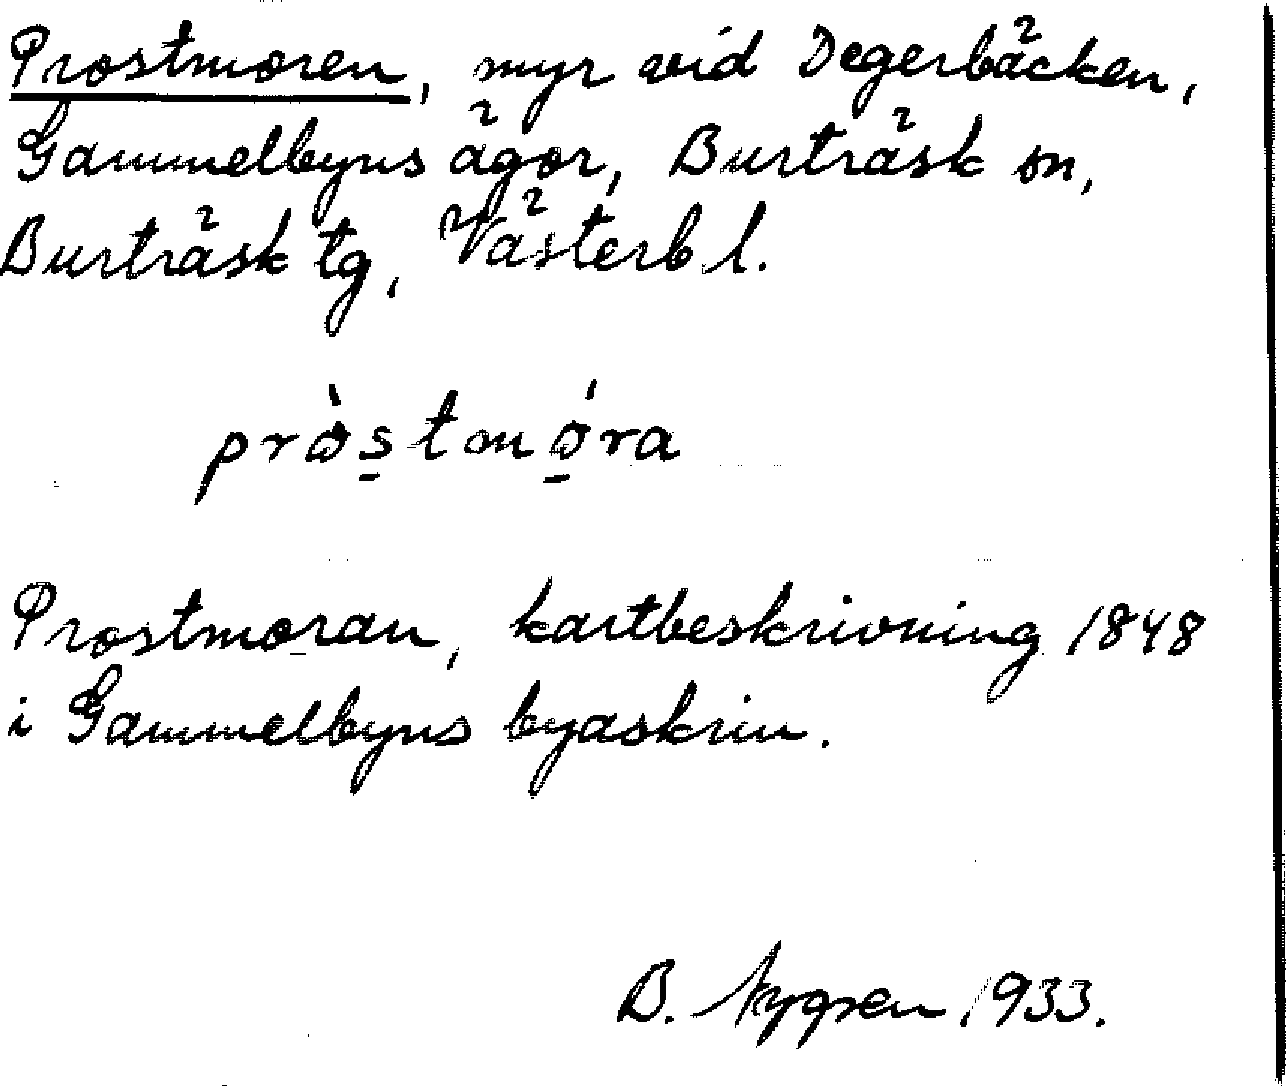 Prostmoren, myr vid Degerbäcken,
Gammelbyns ägor, Burträsk sn,
Burträsk tg, Västerb l.
pròstmóra
Prostmoran, kartbeskrivning 1848
i Gammelbyns byaskrin.
B. Nygren 1933.